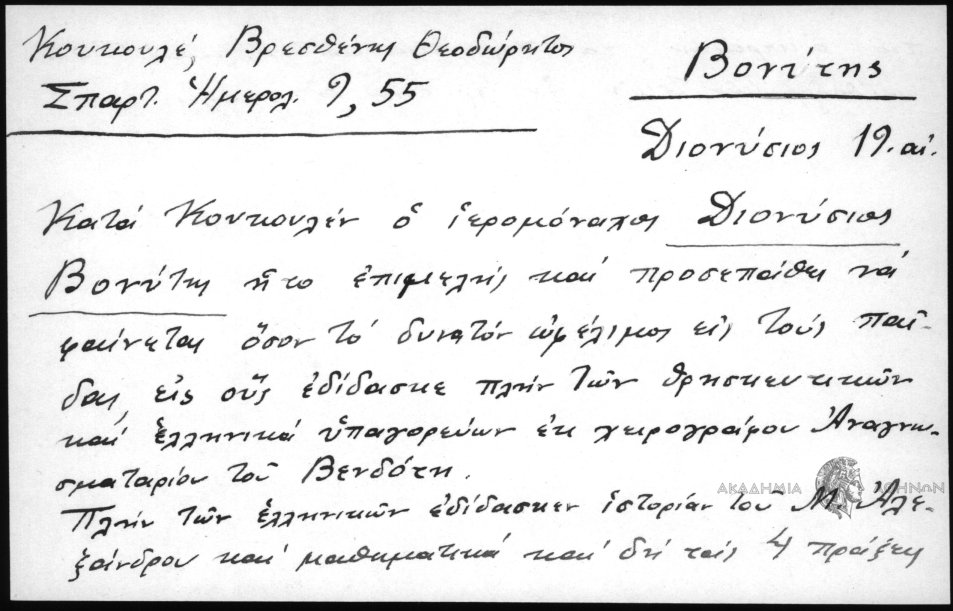 Κουκουλέ, Βρεσθένης Θεοδώρητος
Σπαρτ. Ἡμερολ. 9, 55
Βονίτης
Διονύσιος 19. αἰ.
Κατά Κουκουλέν ὁ ἱερομόναχος Διονύσιος
Βονίτης ἦτο ἐπιμελής καί προσεπάθει νά
φαίνεται ὅσον τό δυνατόν ὠφέλιμος εἰς τούς παῖ-
δας, εἰς οὕς ἐδίδασκε πλήν τῶν θρησκευτικῶν
καί ἑλληνικά ὑπαγορεύων ἐκ χειρογράφου Ἀναγνω-
σματαρίου τοῦ Βενδότη.
Πλήν τῶν ἑλληνικῶν ἐδίδασκεν ἱστορίαν τοῦ Μ. Ἀλε-
ξάνδρου καί μαθηματικά καί δή τάς 4 πράξεις
ΑΚΑΔΗΜΙΑ ΑΘΗΝΩΝ